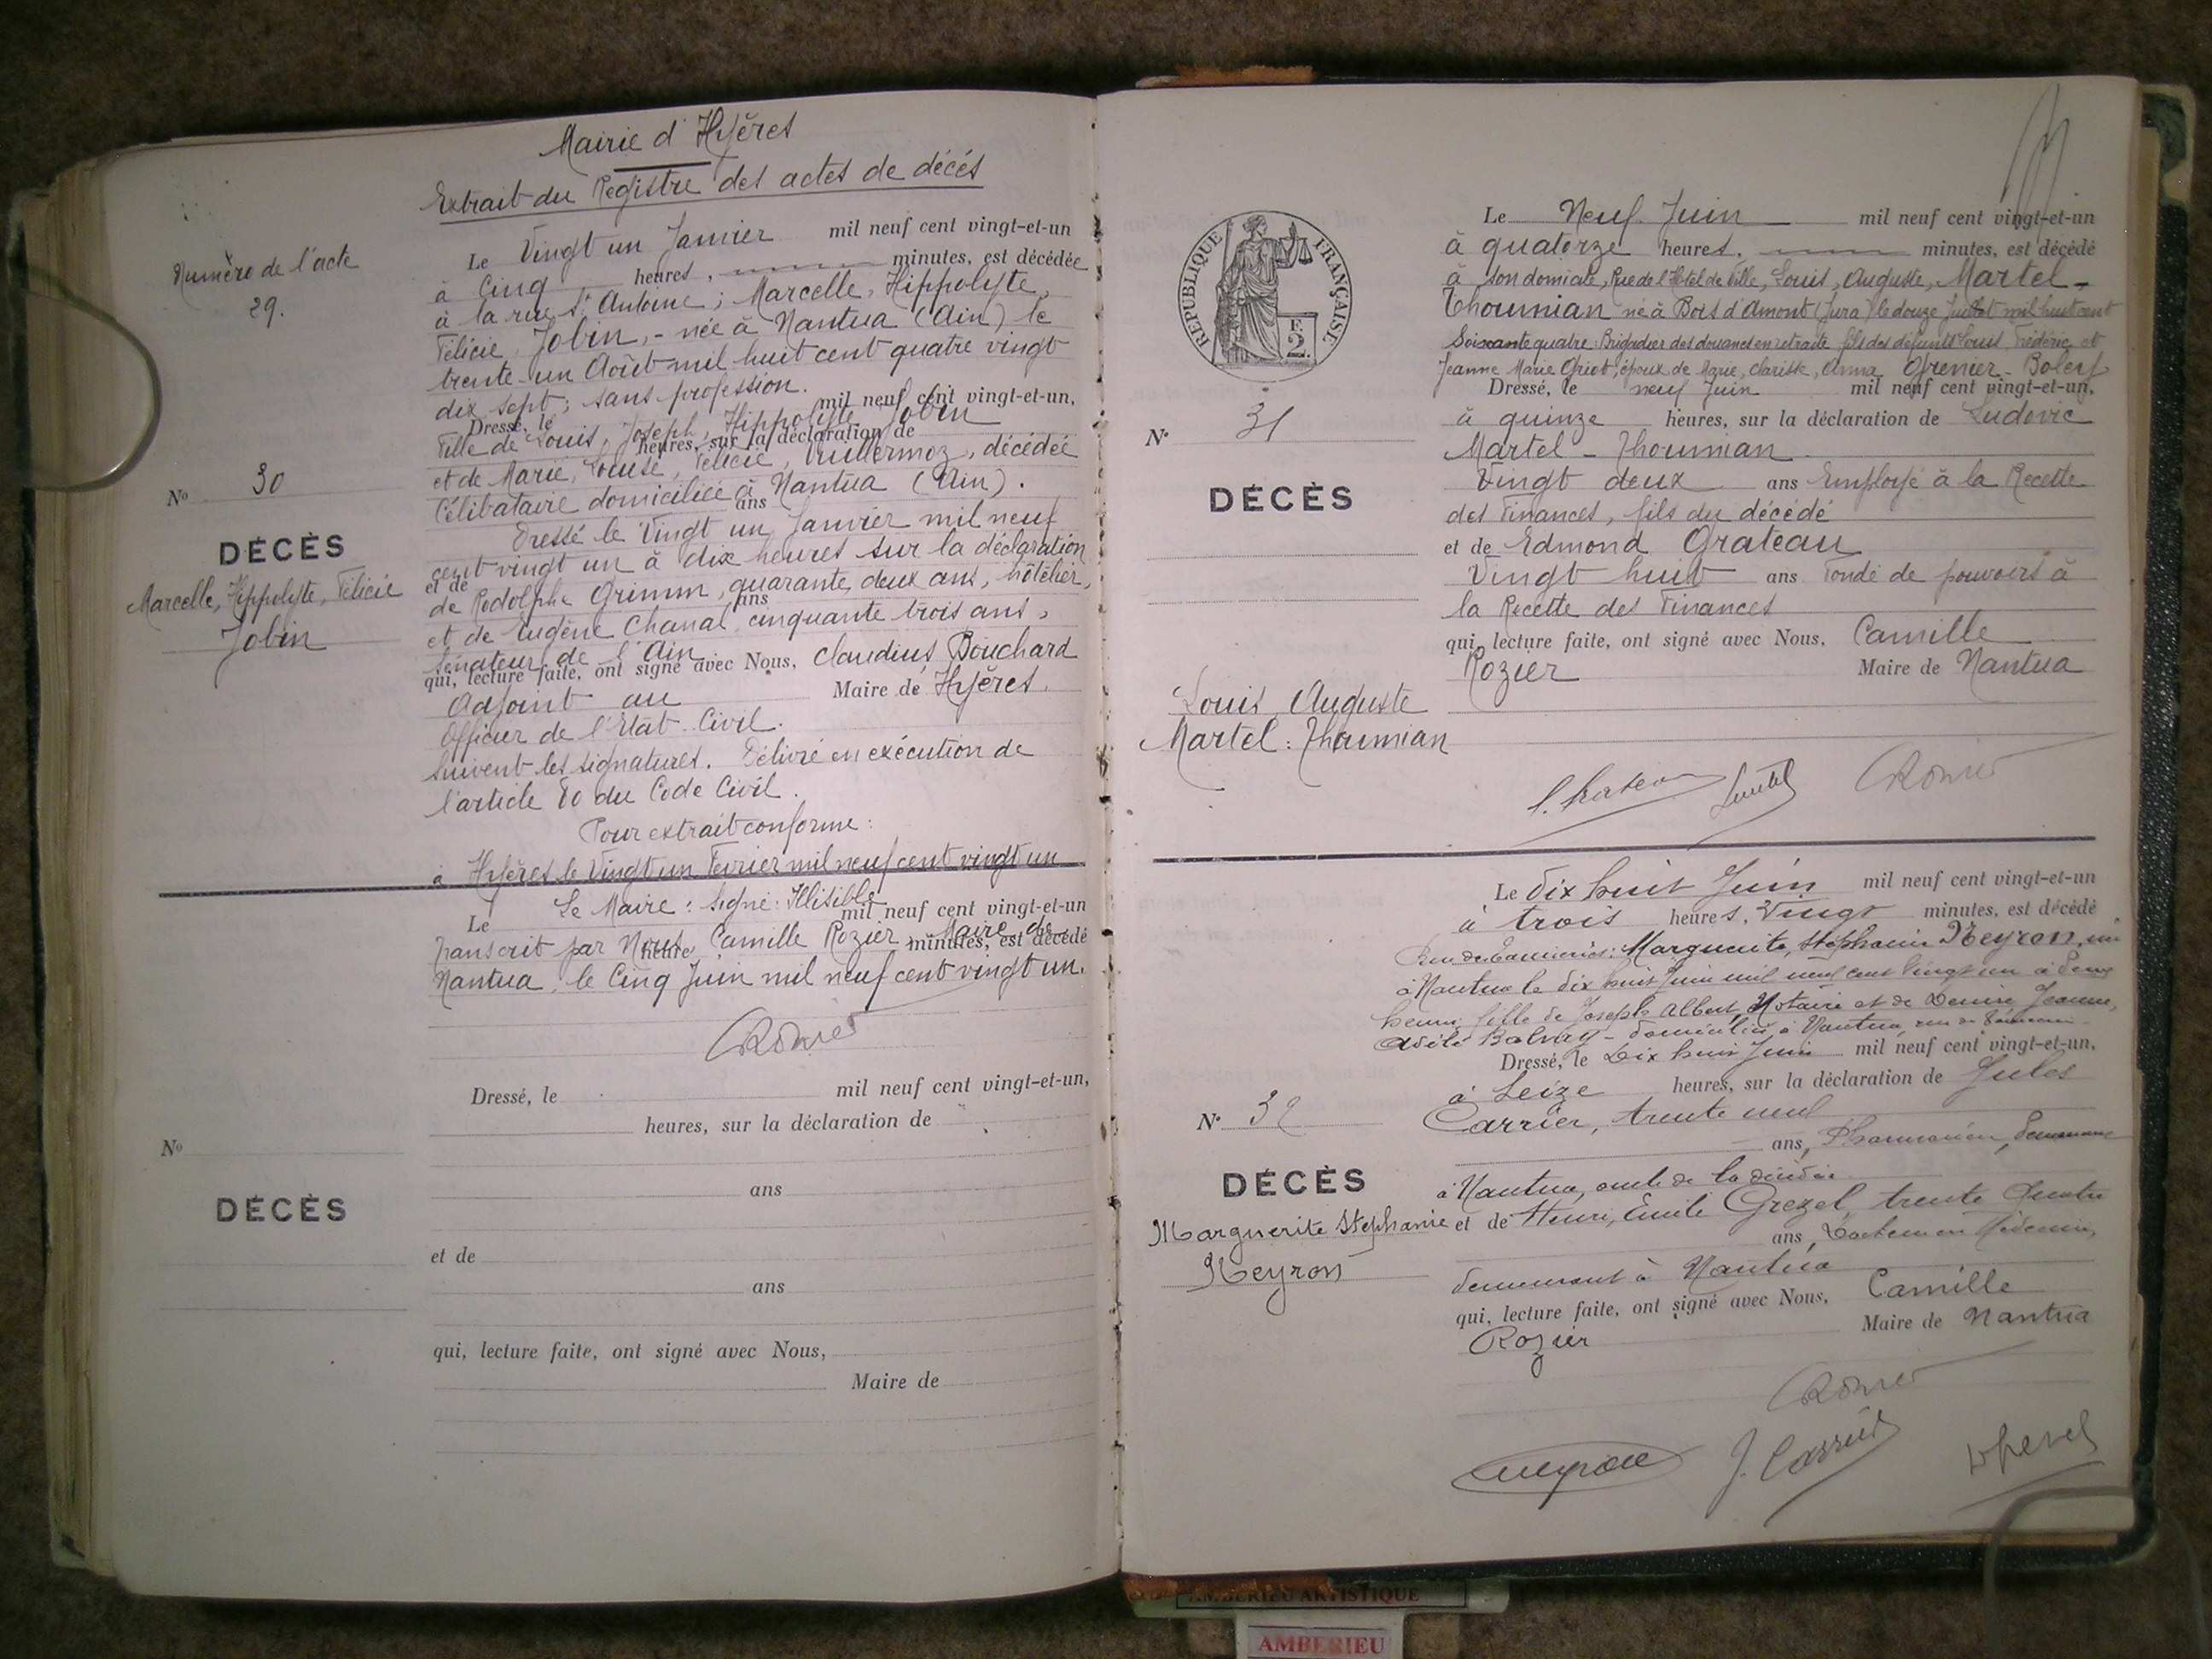 Mairie d'Hyères
Extrait du Registre des actes de décés
Numéro de l'acte
29.
Le Vingt un Janvier mil neuf cent vingt-et-un
à Cinq heures, minutes, est décédée
à la rue St Antoine ; Marcelle, Hippolyte,
Félicie, Jobin, - née à Nantua (Ain) le
trente-un Août mil huit cent quatre vingt
dix sept ; sans profession.
Dressé, le mil neuf cent vingt-et-un,
Fille de Louis, Joseph, Hippolyte Jobin
heures, sur la déclaration de
et de Marie, Louise, Félicie, Vuillermoz, décédée
Célibataire domiciliée à Nantua (Ain).
ans
Dressé le Vingt un Janvier mil neuf
cent vingt un à dix heures sur la déclaration
et de
de Rodolphe Grimm, quarante deux ans, hôtelier,
ans
et de Eugène Chanal, cinquante trois ans,
Sénateur de l'Ain
qui, lecture faite, ont signé avec Nous, Claudius Bouchard
Adjoint au Maire de Hyères.
Officier de l'Etat-Civil.
Suivent les signatures. Délivré en exécution de
l'article 80 du Code Civil.
Pour extrait conforme :
à Hyères le Vingt un Fevrier mil neuf cent vingt un
Le Maire : Signé : Illisible
Le mil neuf cent vingt-et-un
Transcrit par Nous, Camille Rozier Maire de
heure minutes, est décédé
Nantua, le Cinq Juin mil neuf cent vingt un.
CRozier
No 30
DÉCÈS
Marcelle, Hippolyte, Félicie
Jobin
Dressé, le mil neuf cent vingt-et-un,
heures, sur la déclaration de
ans
et de
ans
qui, lecture faite, ont signé avec Nous,
Maire de
No
DÉCÈS
REPUBLIQUE FRANÇAISE
E
2.
No 31
DÉCÈS
Louis, Auguste
Martel-Thoumian
Le Neuf Juin mil neuf cent vingt-et-un
à quatorze heures, minutes, est décédé
à son domicile, Rue de l'Hôtel de Ville, Louis, Auguste, Martel-
Thoumian né à Bois d'Amont (Jura) le douze Juillet mil huit cent
Soixante quatre, Brigadier des douanes en retraite fils des défunts Louis, Frédéric et
Jeanne Marie Griot, époux de Marie, Clarisse, Anna Grenier-Boley
Dressé, le neuf Juin mil neuf cent vingt-et-un,
à quinze heures, sur la déclaration de Ludovic
Martel-Thoumian
Vingt deux ans Employé à la Recette
des Finances, fils du décédé
et de Edmond Grateau
Vingt huit ans Fondé de pouvoirs à
la Recette des Finances
qui, lecture faite, ont signé avec Nous, Camille
Rozier Maire de Nantua
CRozier
Le Dix huit Juin mil neuf cent vingt-et-un
à trois heures, Vingt minutes, est décédé
Rue des Tanneries : Marguerite, Stéphanie Neyron, née
à Nantua le dix huit Juin mil neuf cent vingt un à deux
heures, fille de Joseph Albert, Notaire et de Denise Jeanne,
Adèle domiciliés à Nantua, rue
Dressé, le Dix huit Juin mil neuf cent vingt-et-un,
à Seize heures, sur la déclaration de Jules
Carrier, trente neuf
ans, Pharmacien, demeurant
à Nantua, oncle de la décédée
et de Henri, Emile Grezel, trente quatre
ans, Docteur en Médecine,
demeurant à Nantua
qui, lecture faite, ont signé avec Nous, Camille
Rozier Maire de Nantua
CRozier
Neyron J. Carrier
No 32
DÉCÈS
Marguerite Stephanie
Neyron
AMBERIEU ARTISTIQUE
AMBERIEU